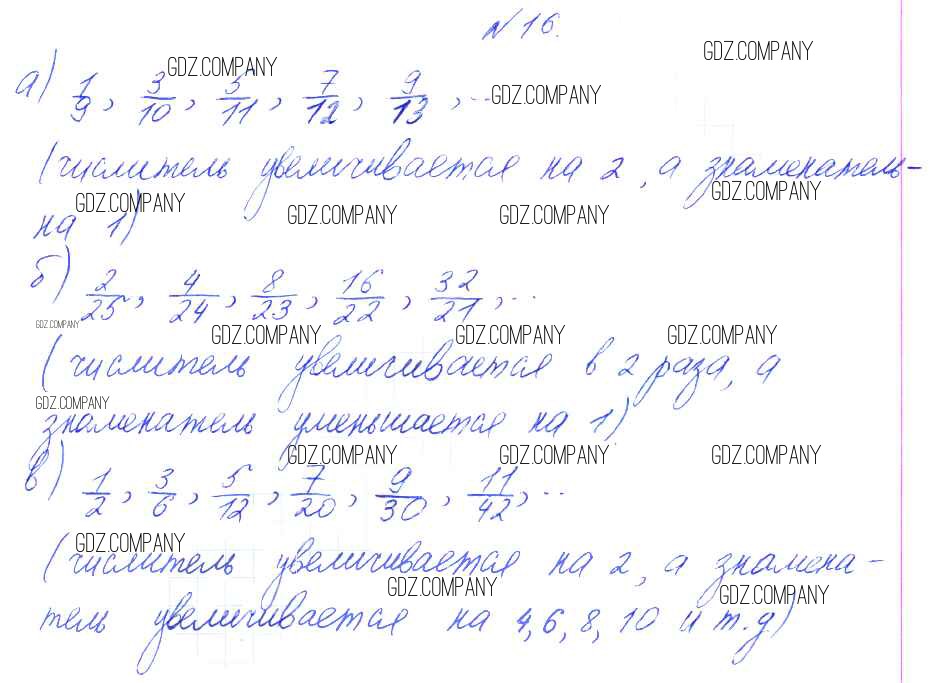 N 16.
GDZ.COMPANY
GDZ.COMPANY
а) 1/9, 3/10, 5/11, 7/12, 9/13, ...
GDZ.COMPANY
(числитель увеличивается на 2, а знаменатель-
GDZ.COMPANY GDZ.COMPANY GDZ.COMPANY GDZ.COMPANY
на 1)
б) 2/25, 4/24, 8/23, 16/22, 32/21, ...
GDZ.COMPANY GDZ.COMPANY GDZ.COMPANY GDZ.COMPANY
(числитель увеличивается в 2 раза, а
GDZ.COMPANY
знаменатель уменьшается на 1)
GDZ.COMPANY GDZ.COMPANY GDZ.COMPANY
в) 1/2, 3/6, 5/12, 7/20, 9/30, 11/42, ...
GDZ.COMPANY
(числитель увеличивается на 2, а знамена-
GDZ.COMPANY GDZ.COMPANY
тель увеличивается на 4, 6, 8, 10 и т.д)